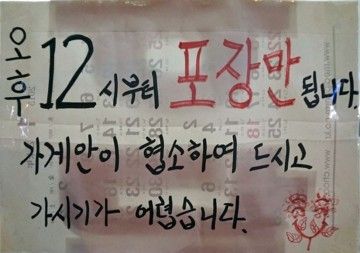 오후 12시부터 포장만 됩니다
가게안이 협소하여 드시고
가시기가 어렵습니다.